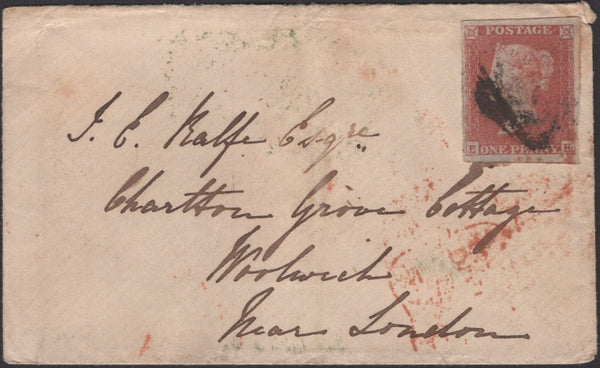 POSTAGE
ONE PENNY
J. E. Ralfe Esqre
Charlton Grove Cottage
Woolwich
Near London